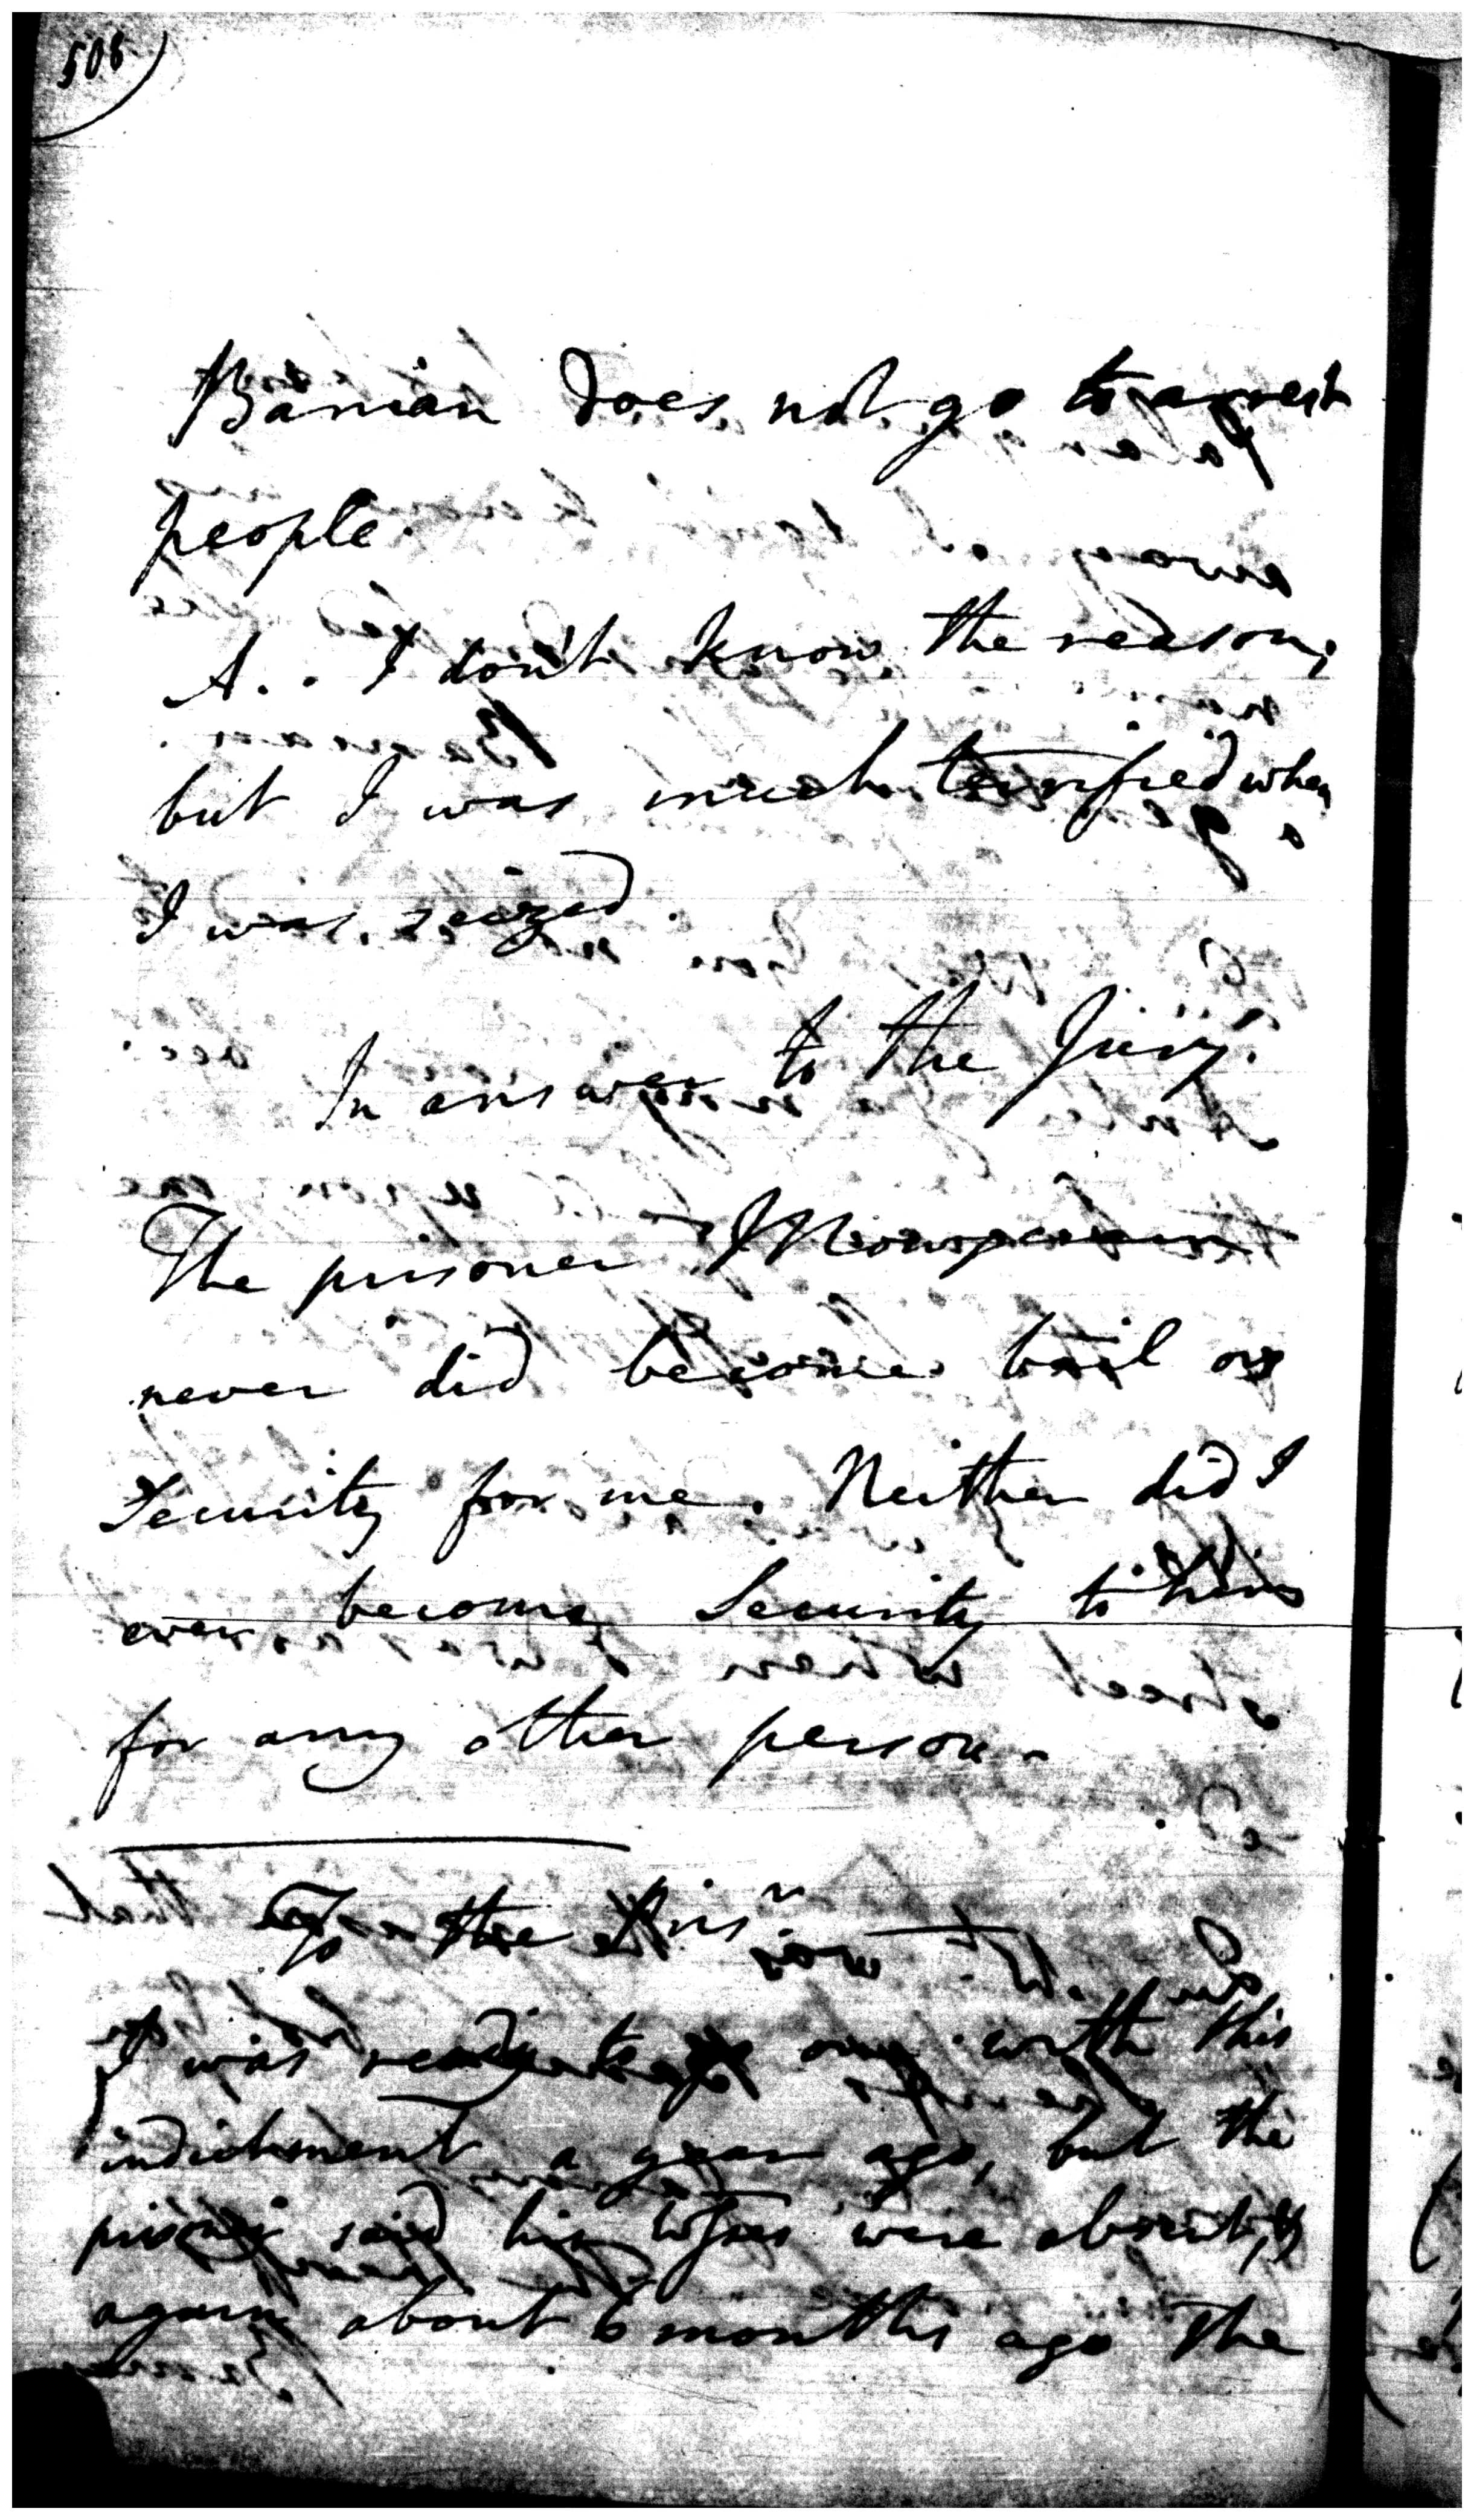 508
Banian does not go to arrest
people.
A.. I don't know the reason,
but I was much terrified when
I was seized.
In answer to the Jury.
The prisoner
never did become bail or
Security for me. Neither did I
ever become Security to him
for any other person.
To the Prisr.
I was ready to go on with this
indictment a year ago, but the
prisoner said his were absent, &
again about 6 months ago the